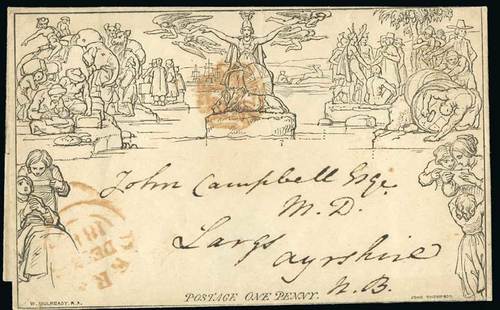 John Campbell Esqe.
M.D.
Largs
Ayrshire
N.B.
POSTAGE ONE PENNY.
W. MULREADY. R.A.
JOHN THOMPSON